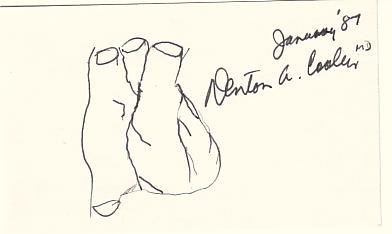 January '87
Denton A. Cooley MD